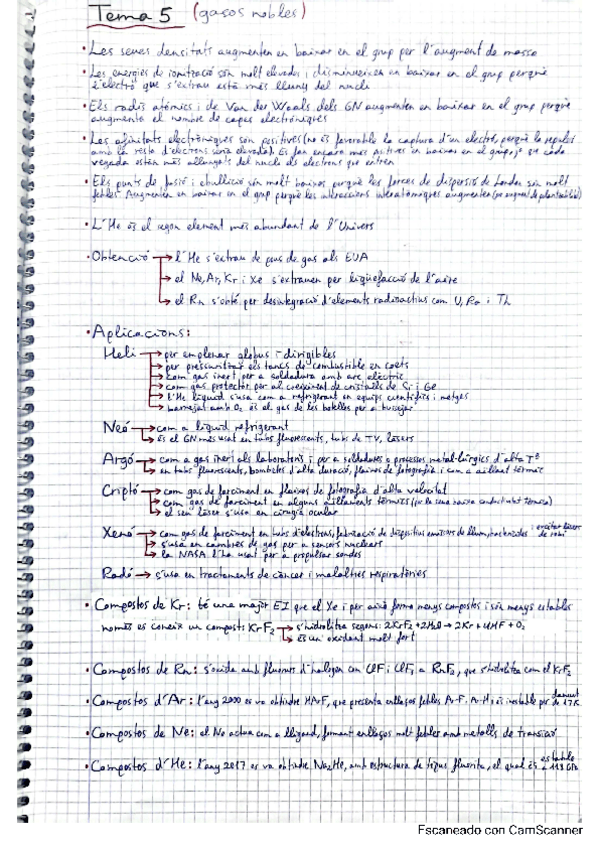 Tema 5 (gasos nobles)
· Les seues densitats augmenten en baixar en el grup per l'augment de massa
· Les energies de ionització són molt elevades i disminueixen en baixar en el grup perquè
l'electró que s'extrau està més lluny del nucli
· Els radis atòmics i de Van der Waals dels GN augmenten en baixar en el grup perquè
augmenta el nombre de capes electròniques
· Les afinitats electròniques son positives (no és favorable la captura d'un electró, perquè la repulsió
amb la resta d'electrons seria elevada). Es fan encara més positives en baixar en el grup, ja que cada
vegada estàn més allunyats del nucli els electrons que entren
· Els punts de fusió i ebullició són molt baixos perquè les forces de dispersió de London són molt
febles. Augmenten en baixar en el grup perquè les interaccions interatòmiques augmenten (per augment de polaritzabilitat)
· L'He és el segon element més abundant de l'Univers
· Obtenció → l'He s'extrau de pous de gas als EUA
→ el Ne, Ar, Kr i Xe s'extrauen per liqüefacció de l'aire
→ el Rn s'obté per desintegració d'elements radioactius com U, Ra i Th
· Aplicacions:
Heli → per emplenar globus i dirigibles
→ per pressuritzar els tancs de combustible en coets
→ com gas inert per a soldadura amb arc elèctric
→ com gas protector per al creiximent de cristalls de Si i Ge
→ l'He líquid s'usa com a refrigerant en equips científics i metges
→ barrejat amb O₂ és el gas de les botelles per a bussejar
Neó → com a líquid refrigerant
→ és el GN més usat en tubs fluorescents, tubs de TV, làsers
Argó → com a gas inert als laboratoris i per a soldadures o processos metal·lúrgics d'alta Tª
→ en tubs fluorescents, bombetes d'alta duració, flaixos de fotografia i com a aïllant tèrmic
Criptó → com gas de farciment en flaixos de fotografia d'alta velocitat
→ com gas de farciment en alguns aïllaments tèrmics (per la seua baixa conductivitat tèrmica)
→ el seu làser s'usa en cirugia ocular
Xenó → com gas de farciment en tubs d'electrons, fabricació de dispositius emissors de llum, i excitar làsers
de robí
→ s'usa en cambres de gas per a sensors nuclears
→ la NASA l'ha usat per a propulsar sondes
Radó → s'usa en tractaments de càncer i malalties respiratòries
· Compostos de Kr: té una major EI que el Xe i per això forma menys compostos i són menys estables
només es coneix un compost: KrF₂ → s'hidrolitza segons: 2KrF₂ + 2H₂O → 2Kr + 4HF + O₂
→ és un oxidant molt fort
· Compostos de Rn: s'oxida amb fluorurs d'halogen com ClF i ClF₃ a RnF₂, que s'hidrolitza com el KrF₂
· Compostos d'Ar: l'any 2000 es va obtindre HArF, que presenta enllaços febles Ar-F, Ar-H, i és inestable per damunt
de 17K
· Compostos de Ne: el Ne actua com a lligand, formant enllaços molt febles amb metalls de transició
· Compostos d'He: l'any 2017 es va obtindre Na₂He, amb estructura de tipus fluorita, el qual és estable
113 GPa
Escaneado con CamScanner